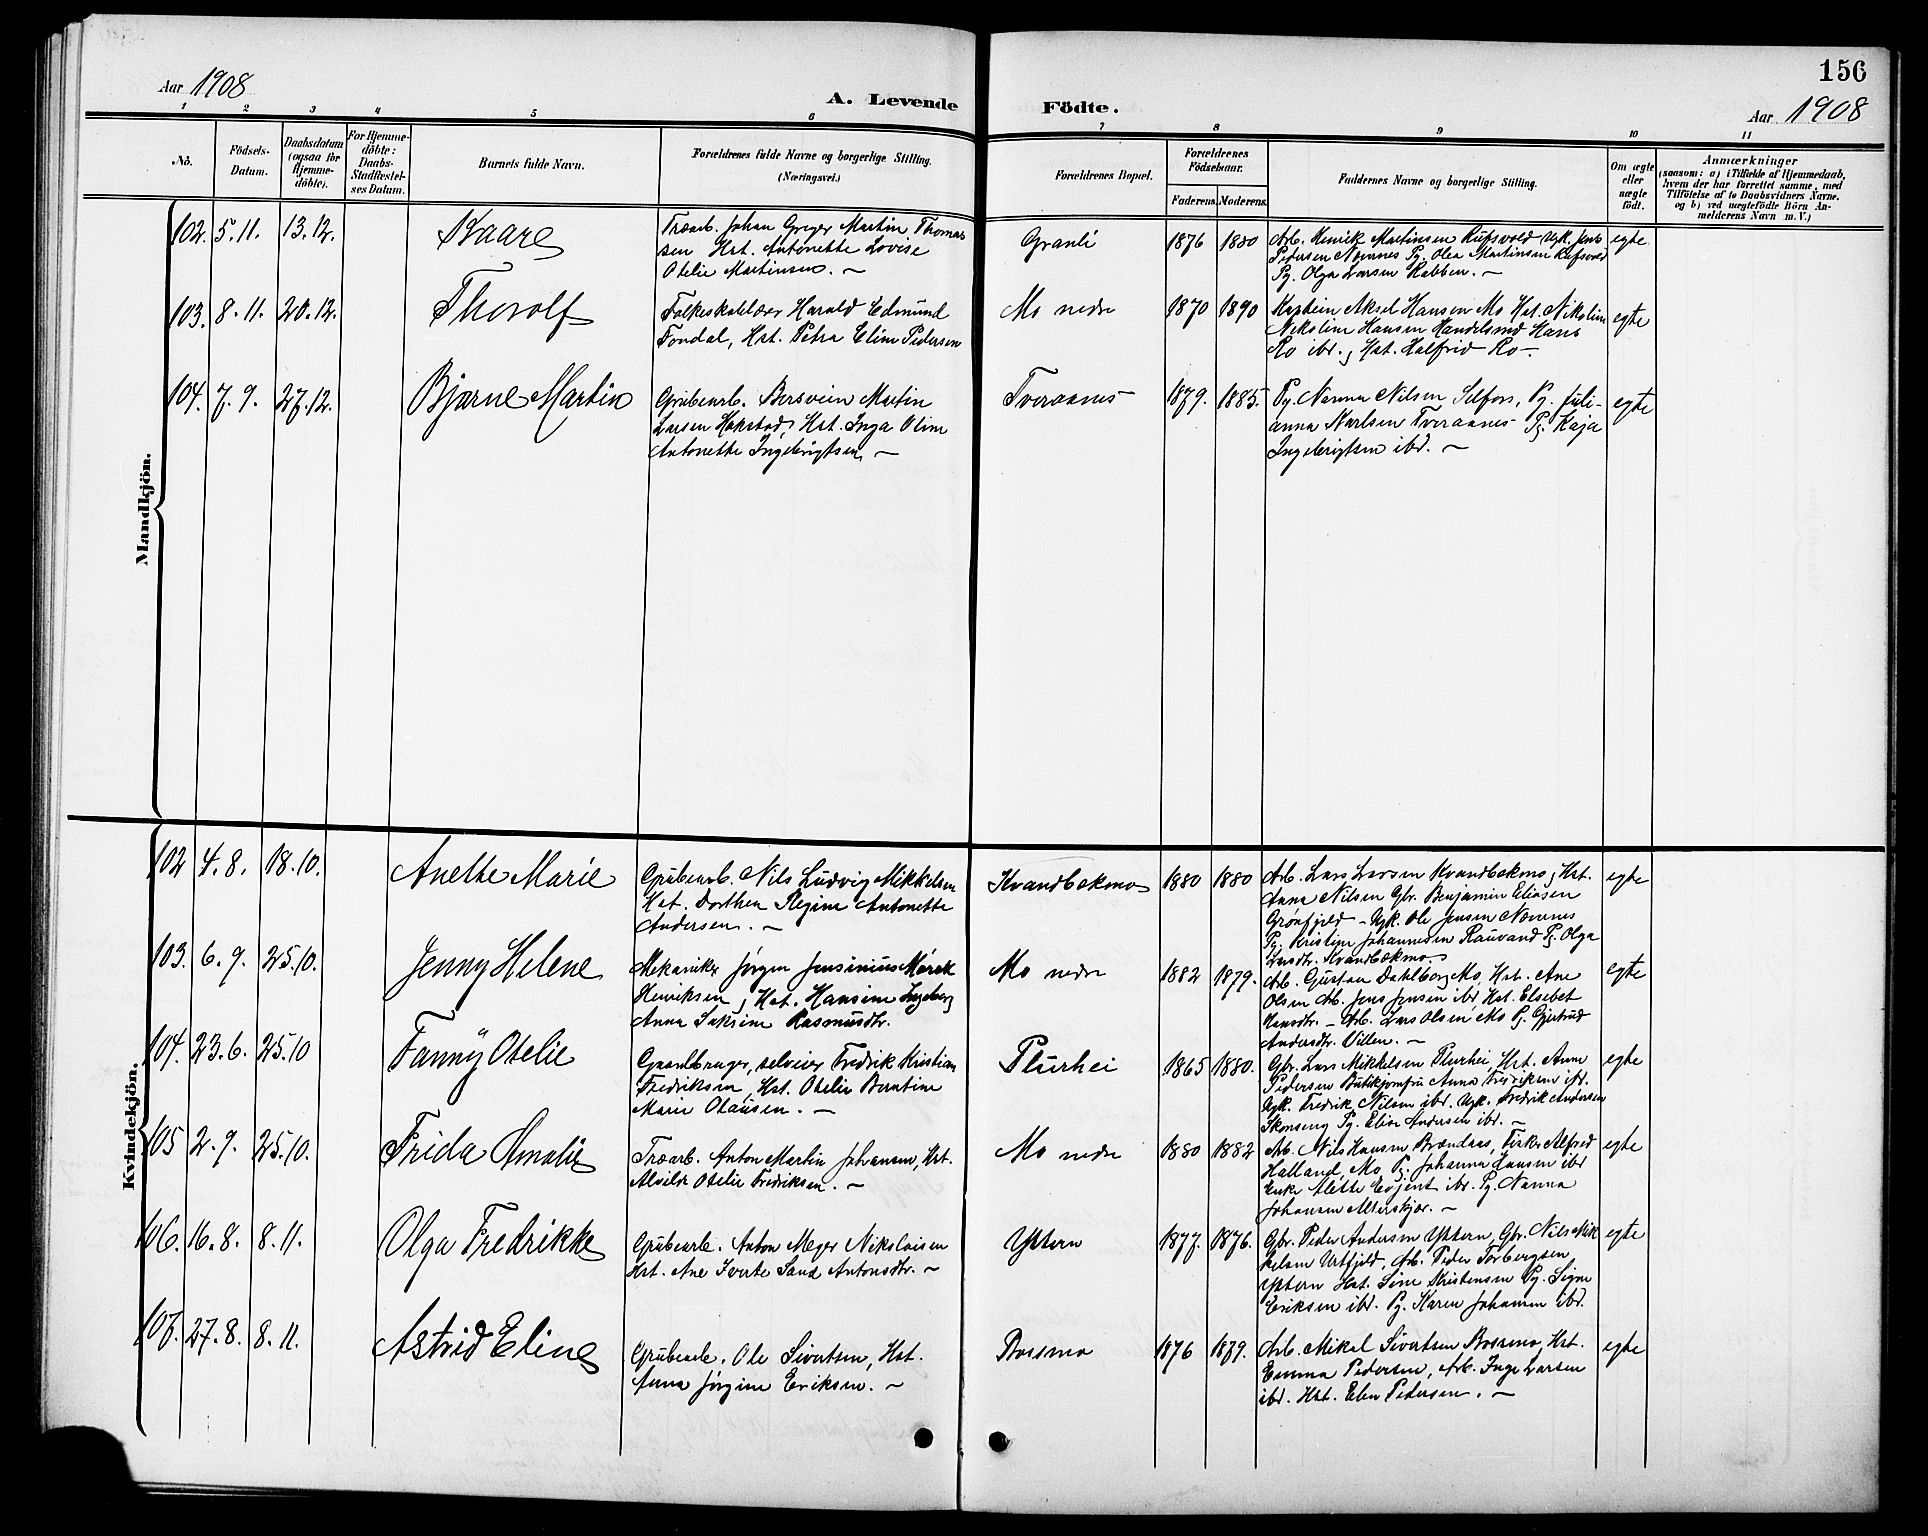 156
Aar 1908
A. Levende Födte.
Aar 1908
1 2 3 4 5 6 7 8 9 10 11
No.
Födsels-
Datum.
Daabsdatum
(ogsaa for
Hjemme-
döbte).
For Hjemme-
döbte:
Daabs-
Stadfæstel-
ses Datum.
Barnets fulde Navn.
Forældrenes fulde Navne og borgerlige Stilling.
(Næringsvei.)
Forældrenes Bopæl.
Forældrenes
Födselsaar.
Faderens. Moderens.
Faddernes Navne og borgerlige Stilling.
Om ægte
eller
uægte
födt.
Anmærkninger
(saasom: a) i Tilfælde af Hjemmedaab,
hvem der har forrettet samme, med
Tilföielse af to Daabsvidners Navne.
og b) ved uægtefödte Börn An-
melderens Navn m. V.)
Mandkjön.
102. 5.11. 13.12. Kaare
Træarb. Johan Greger Martin Thomas
sen Hst. Antonette Lovise
Otelie Martinsen. —
Granli 1876 1880
Arb. Henrik Martinsen Rufsvold Ugk. Jens
Pedersen Novnes Pg. Olea Martinsen Rufsvold
Pg. Olga Larsen Rabben. —
egte
103. 8.11. 20.12. Thorolf
Folkeskolelærer Harald Edmund
Fondal, Hst. Petra Eline Pedersen
Mo nedre 1870 1890
Kaptein Aksel Hansen Mo Hst. Nikoline
Nikoline Hansen Handelsmd Hans
Ro ibd., Hst. Halfrid Ro —.
egte
104. 7.9. 27.12. Bjarne Martin
Grubearb. Bersvein Martin
Larsen Hokstad, Hst. Inga Oline
Antonette Ingebrigtsen. —
Tveraanes 1879. 1885.
Pg. Nanna Nilsen Selfors, Pg. Juli-
anna Karlsen Tveraanes Pg. Kaja
Ingebrigtsen ibd. —
egte
Kvindekjön.
102 4.8. 18.10. Anette Marie
Grubearb. Nils Ludvig Mikkelsen
Hst. Dorthea Regine Antonette
Andersen. —
Kvandbækmo 1880 1880
Arb. Lars Larsen Kvandbækmo, Hst.
Anna Nilsen Gbr. Benjamin Eliasen
Grønfjeld — Ugk. Ole Jensen Novnes
Pg. Kristine Johannesen Rauvand Pg. Olga
Larsdtr. Kvandbækmo
egte
103. 6.9. 25.10. Jenny Helene
Mekaniker Jørgen Jensinius Mørck
Henriksen, Hst. Hansine Ingeborg
Anna Sakrine Rasmusdtr.
Mo nedre 1882 1879.
Arb. Gustav Dahlberg Mo, Hst. Ane
Olsen Arb. Jens Jensen ibd Hst. Elsebet
Hansdtr. — Arb. Lars Olsen Mo Pg. Gjertrud
Andersdtr. Villen. —
egte
104. 23.6. 25.10 Fanny Otelie
Gaardbruger, selveier Fredrik Kristian
Fredriksen, Hst. Otelie Berntine
Marie Olausen. —
Plurhei 1865 1880.
Gbr. Lars Mikkelsen Plurhei, Hst. Anne
Pedersen Butikjomfru Anna Fredriksen ibd.
Ugk. Fredrik Nilsen ibd. Ugk. Fredrik Andersen
Skonseng Pg. Elise Andersen ibd. —
egte
105 2.9. 25.10. Frida Amalie
Træarb. Anton Martin Johansen, Hst.
Alvilde Otelie Fredriksen. —
Mo nedre 1880 1882
Arb. Nils Hansen Brændaas, Fisker Alfred
Halland, Mo, Pg. Johanna Hansen ibd
Enke Alette Evjent ibd. Pg. Nanna
Johansen Alterskjær. —
egte
106. 16.8. 8.11. Olga Fredrikke
Grubearb. Anton Meyer Nikolaisen
Hst. Ane Iverte Sand Antonsdtr. —
Yttern 1877. 1876.
Gbr. Peder Andersen Yttern, Gbr. Nils Mik
kelsen Urtfjeld, Arb. Peder Torbergsen
Yttern Hst. Sine Kristensen Pg. Signe
Eriksen ibd. Pg. Karen Johansen ibd.
egte
107. 27.8. 8.11. Astrid Eline
Grubearb. Ole Sivertsen, Hst.
Anna Jørgine Eriksen. —
Bossmo 1876 1879.
Arb. Mikal Sivertsen Bossmo, Hst.
Emma Pedersen, Arb. Inge Larsen
ibd. Hst. Elen Pedersen. —
egte